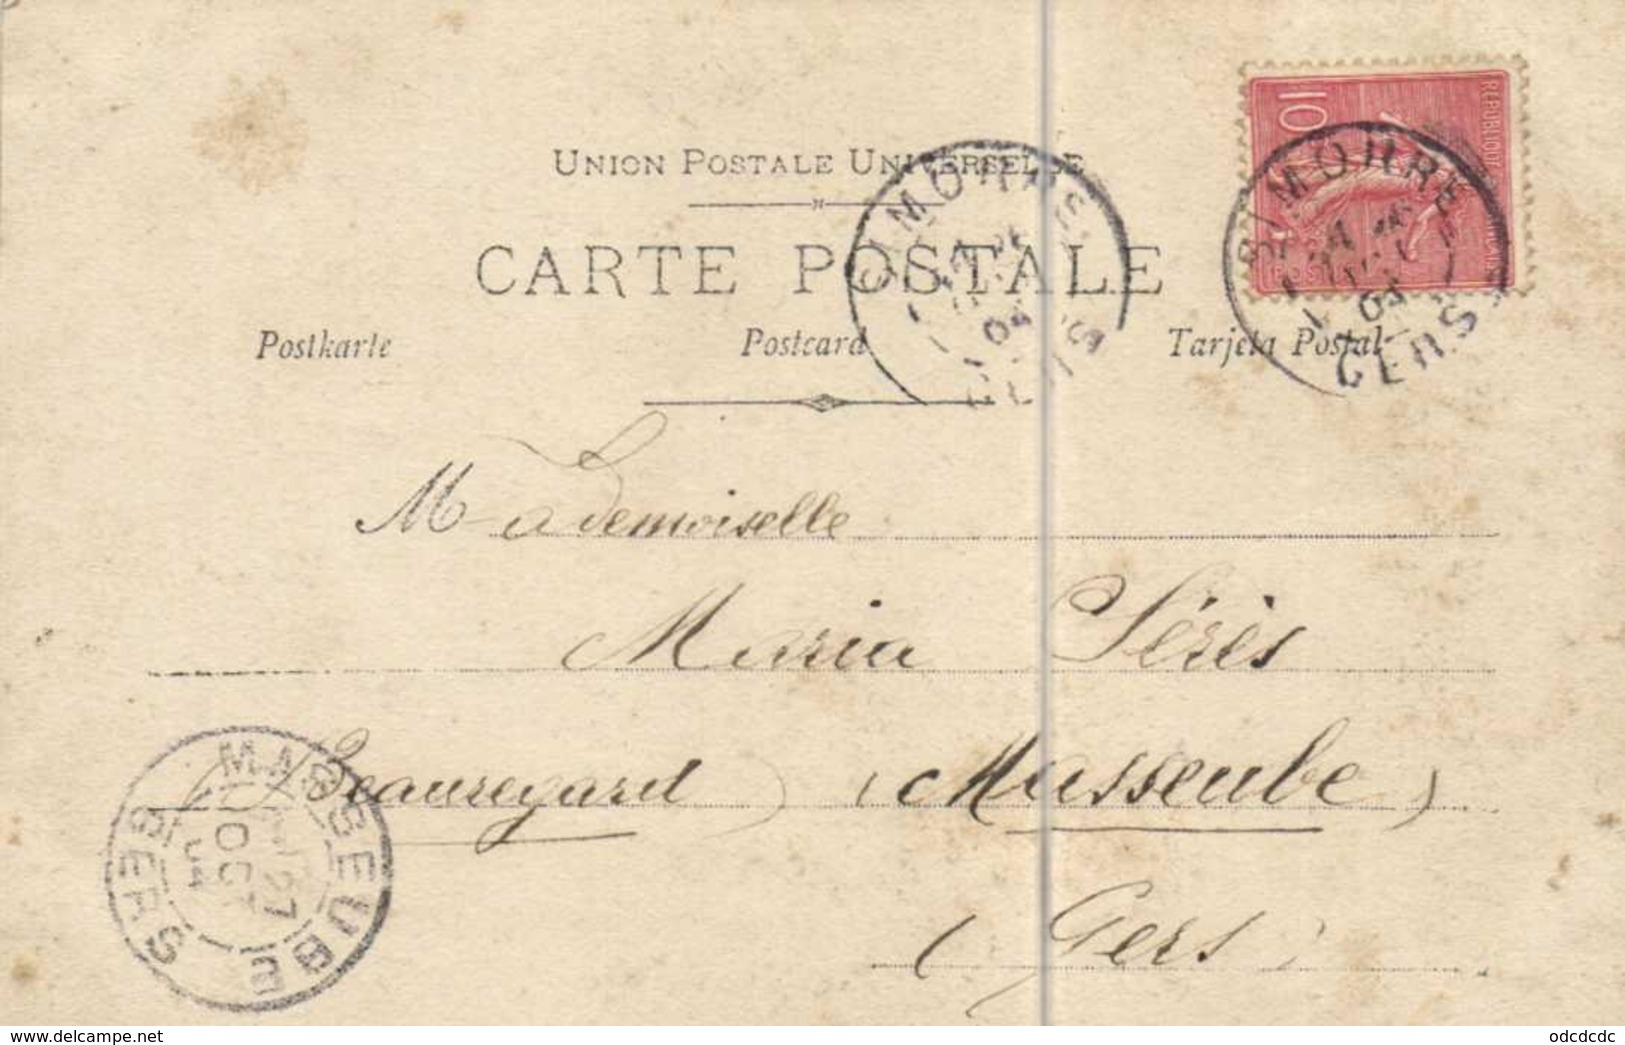 UNION POSTALE UNIVERSELLE
CARTE POSTALE
Postkarte Postcard Tarjeta Postal
10
REPUBLIQUE
POSTES
SIMORRE
GERS
04
SIMORRE
GERS
04
Mademoiselle
Maria Sérès
Beauregard (Masseube)
(Gers)
MASSEUBE
27
OCT
04
GERS
www.delcampe.net
odcdcdc